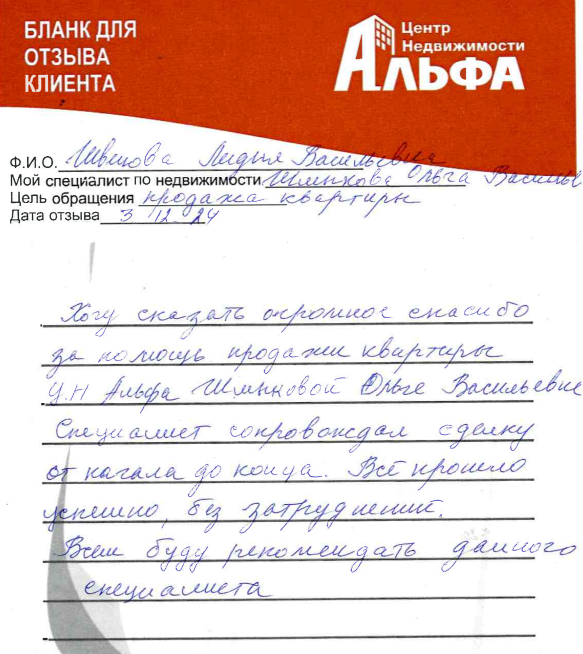 БЛАНК ДЛЯ
ОТЗЫВА
КЛИЕНТА
Центр
Недвижимости
АЛЬФА
Ф.И.О. Лидия Васильевна
Мой специалист по недвижимости Ольга Василье
Цель обращения продажа квартиры
Дата отзыва 3 12. 24
Хочу сказать огромное спасибо
за помощь продажи квартиры
Ц.Н Альфа Ольге Васильевне
Специалист сопровождал сделку
от начала до конца. Всё прошло
успешно, без затруднений.
Всем буду рекомендать данного
специалиста